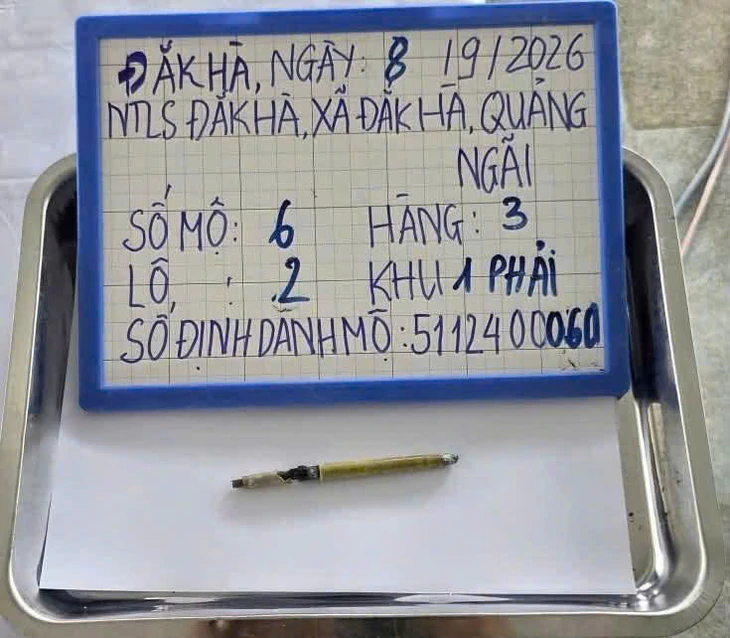 ĐẮK HÀ, NGÀY: 8 /9/2026
NTLS ĐĂK HÀ, XÃ ĐĂK HÀ, QUẢNG
NGÃI
SỐ MỘ: 6 HÀNG: 3
LÔ, : 2 KHU 1 PHẢI
SỐ ĐỊNH DANH MỘ: 5112400060